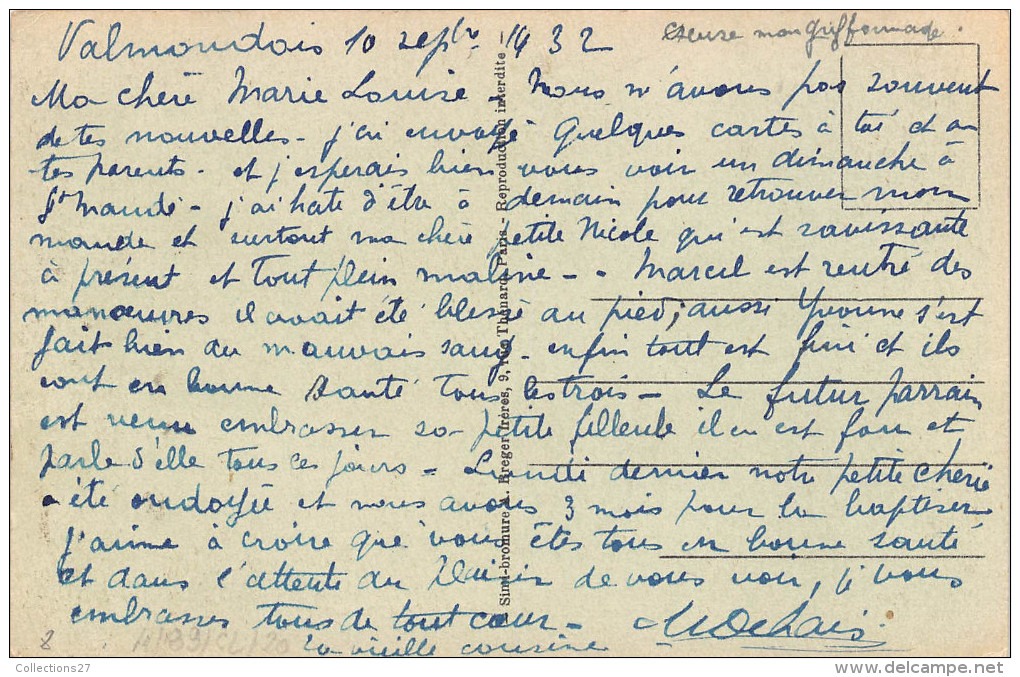 Valmondois 10 septbre 1932
excuse mon griffonnage.
Ma chère Marie Louise - Nous n'avons pas souvent
de tes nouvelles - j'ai envoyé quelques cartes à toi et à
tes parents - et j'esperais bien vous voir un dimanche à
St Mandé - j'ai hate d'être à demain pour retrouver mon
monde et surtout ma chère petite Nicole qui est ravissante
à présent et tout plein maline - - Marcel est rentré des
manœuvres il avait été blessé au pied ; aussi Yvonne s'est
fait bien du mauvais sang - enfin tout est fini et ils
sont en bonne santé tous les trois - Le futur parrain
est venu embrasser sa petite filleule il en est fou et
parle d'elle tous ces jours - Lundi dernier notre petite cherie
a été ondoyée et nous avons 3 mois pour la baptiser
J'aime à croire que vous êtes tous en bonne santé
et dans l'attente du plaisir de vous voir, je vous
embrasse tous de tout cœur -
ta vieille cousine
Simi-bromure A. Breger frères, 9, rue Thénard, Paris - Reproduction interdite -
8
Collections27
www.delcampe.net